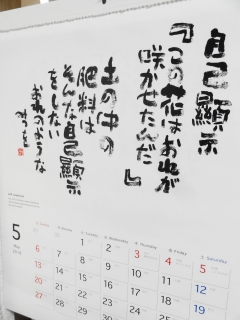 自己顯示
『この花はおれが
咲かせたんだ』
土の中の
肥料は
そんな自己顯示
をしない
おれのような
みつを
5
May
2018
Thursday
Friday
1 2 3 4 5
6 7 8 9 10 11 12
13 14 15 16 17 18 19
20 21 22 23 24
27 28 29 30